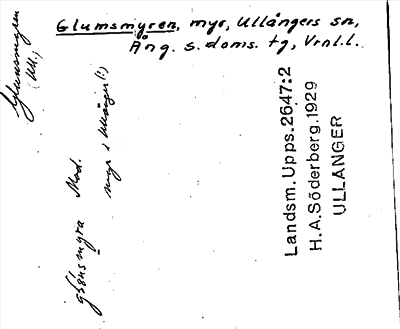 Glumsmyren, myr, Ullångers sn,
Ång. s. doms. tg, Vrnl.l.
Glumsmyren
(Ull.)
Mod.
myr i Ullånger(!)
Landsm. Upps. 2647:2
H.A. Söderberg. 1929
ULLÅNGER